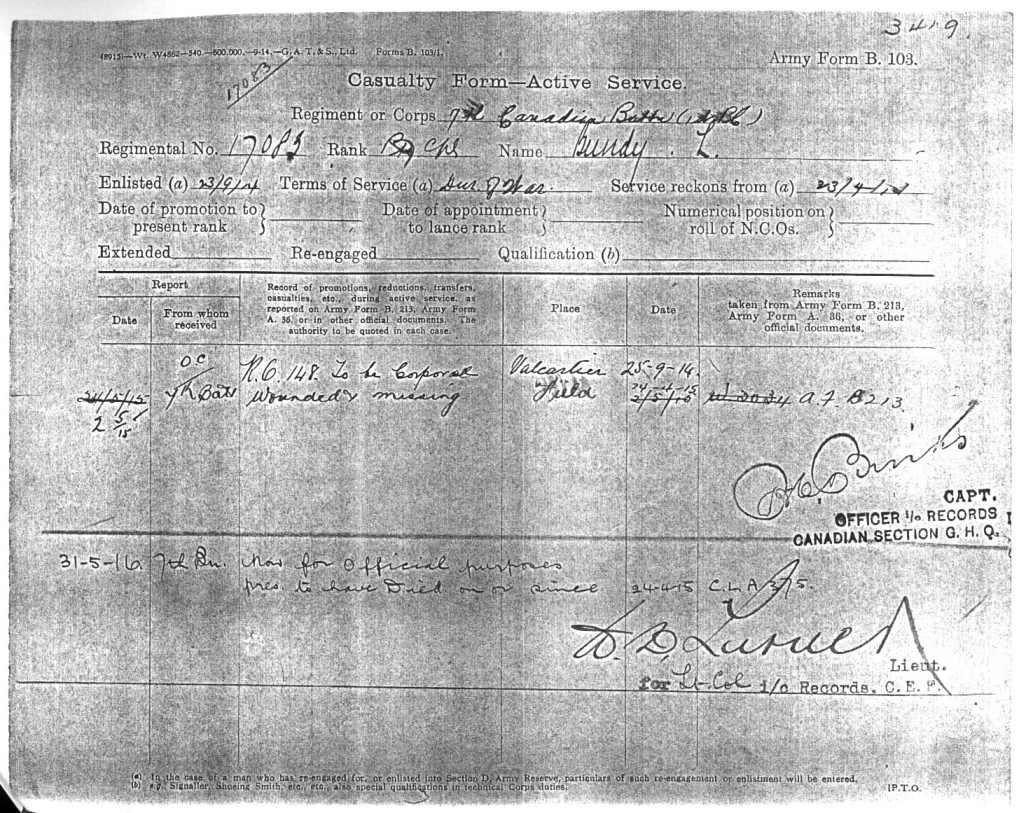 3419.
(8915)—Wt. W4862—540.—500,000.—9-14.—G. A. T. & S., Ltd. Forms B. 103/1.
Army Form B. 103.
17083
Casualty Form—Active Service.
Regiment or Corps 7th Canadian Battn (1st BC)
Regimental No. 17083 Rank Cpl Name Bundy. L.
Enlisted (a) 23/9/14 Terms of Service (a) Dur. of War. Service reckons from (a)
Date of promotion to present rank Date of appointment to lance rank Numerical position on roll of N.C.Os.
Extended Re-engaged Qualification (b)
Report
Date
From whom received
Record of promotions, reductions, transfers, casualties, etc., during active service, as reported on Army Form B. 213, Army Form A. 36, or in other official documents. The authority to be quoted in each case.
Place
Date
Remarks taken from Army Form B. 213, Army Form A. 36, or other official documents.
R.O. 148. To be Corporal Valcartier 25-9-14.
24/5/15 OC 7th Batt Wounded & missing Field 24-4-15 2/5/15 A.F. B213.
2/5/15
Binks
CAPT.
OFFICER i/o RECORDS
CANADIAN SECTION G. H. Q.
31-5-16. 7th Bn. Now for Official purposes
pres. to have Died on or since 24-4-15 C.L.A 375.
D. Turner
Lieut.
for Lt-Col i/o Records. C. E. F.
(a) In the case of a man who has re-engaged for, or enlisted into Section D, Army Reserve, particulars of such re-engagement or enlistment will be entered.
(b) e.g., Signaller, Shoeing Smith, etc., etc., also special qualifications in technical Corps duties.
[P.T.O.